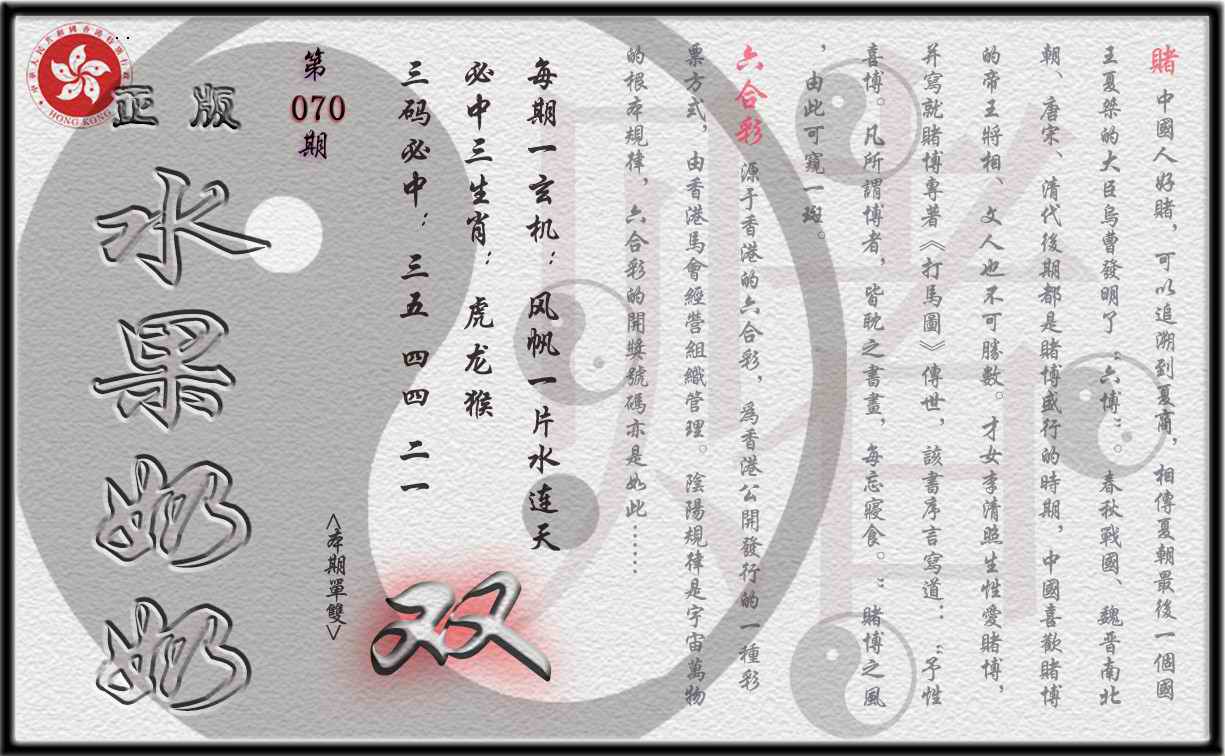 賭 中國人好賭，可以追溯到夏商，相傳夏朝最後一個國
王夏桀的大臣烏曹發明了“六博”。春秋戰國、魏晋南北
朝、唐宋、清代後期都是賭博盛行的時期，中國喜歡賭博
的帝王將相、文人也不可勝數。才女李清照生性愛賭博，
并寫就賭博專著《打馬圖》傳世，該書序言寫道：“予性
喜博。凡所謂博者，皆眈之書畫，每忘寢食。”賭博之風
，由此可窺一斑。
六合彩 源于香港的六合彩，爲香港公開發行的一種彩
票方式，由香港馬會經營組織管理。陰陽規律是宇宙萬物
的根本規律，六合彩的開獎號碼亦是如此……
每期一玄机：风帆一片水连天
必中三生肖：虎龙猴
三码必中：三五 四四 二一
双
<本期單雙>
第
070
期
正版
水果奶奶
中華人民共和國香港特別行政區
HONG KONG